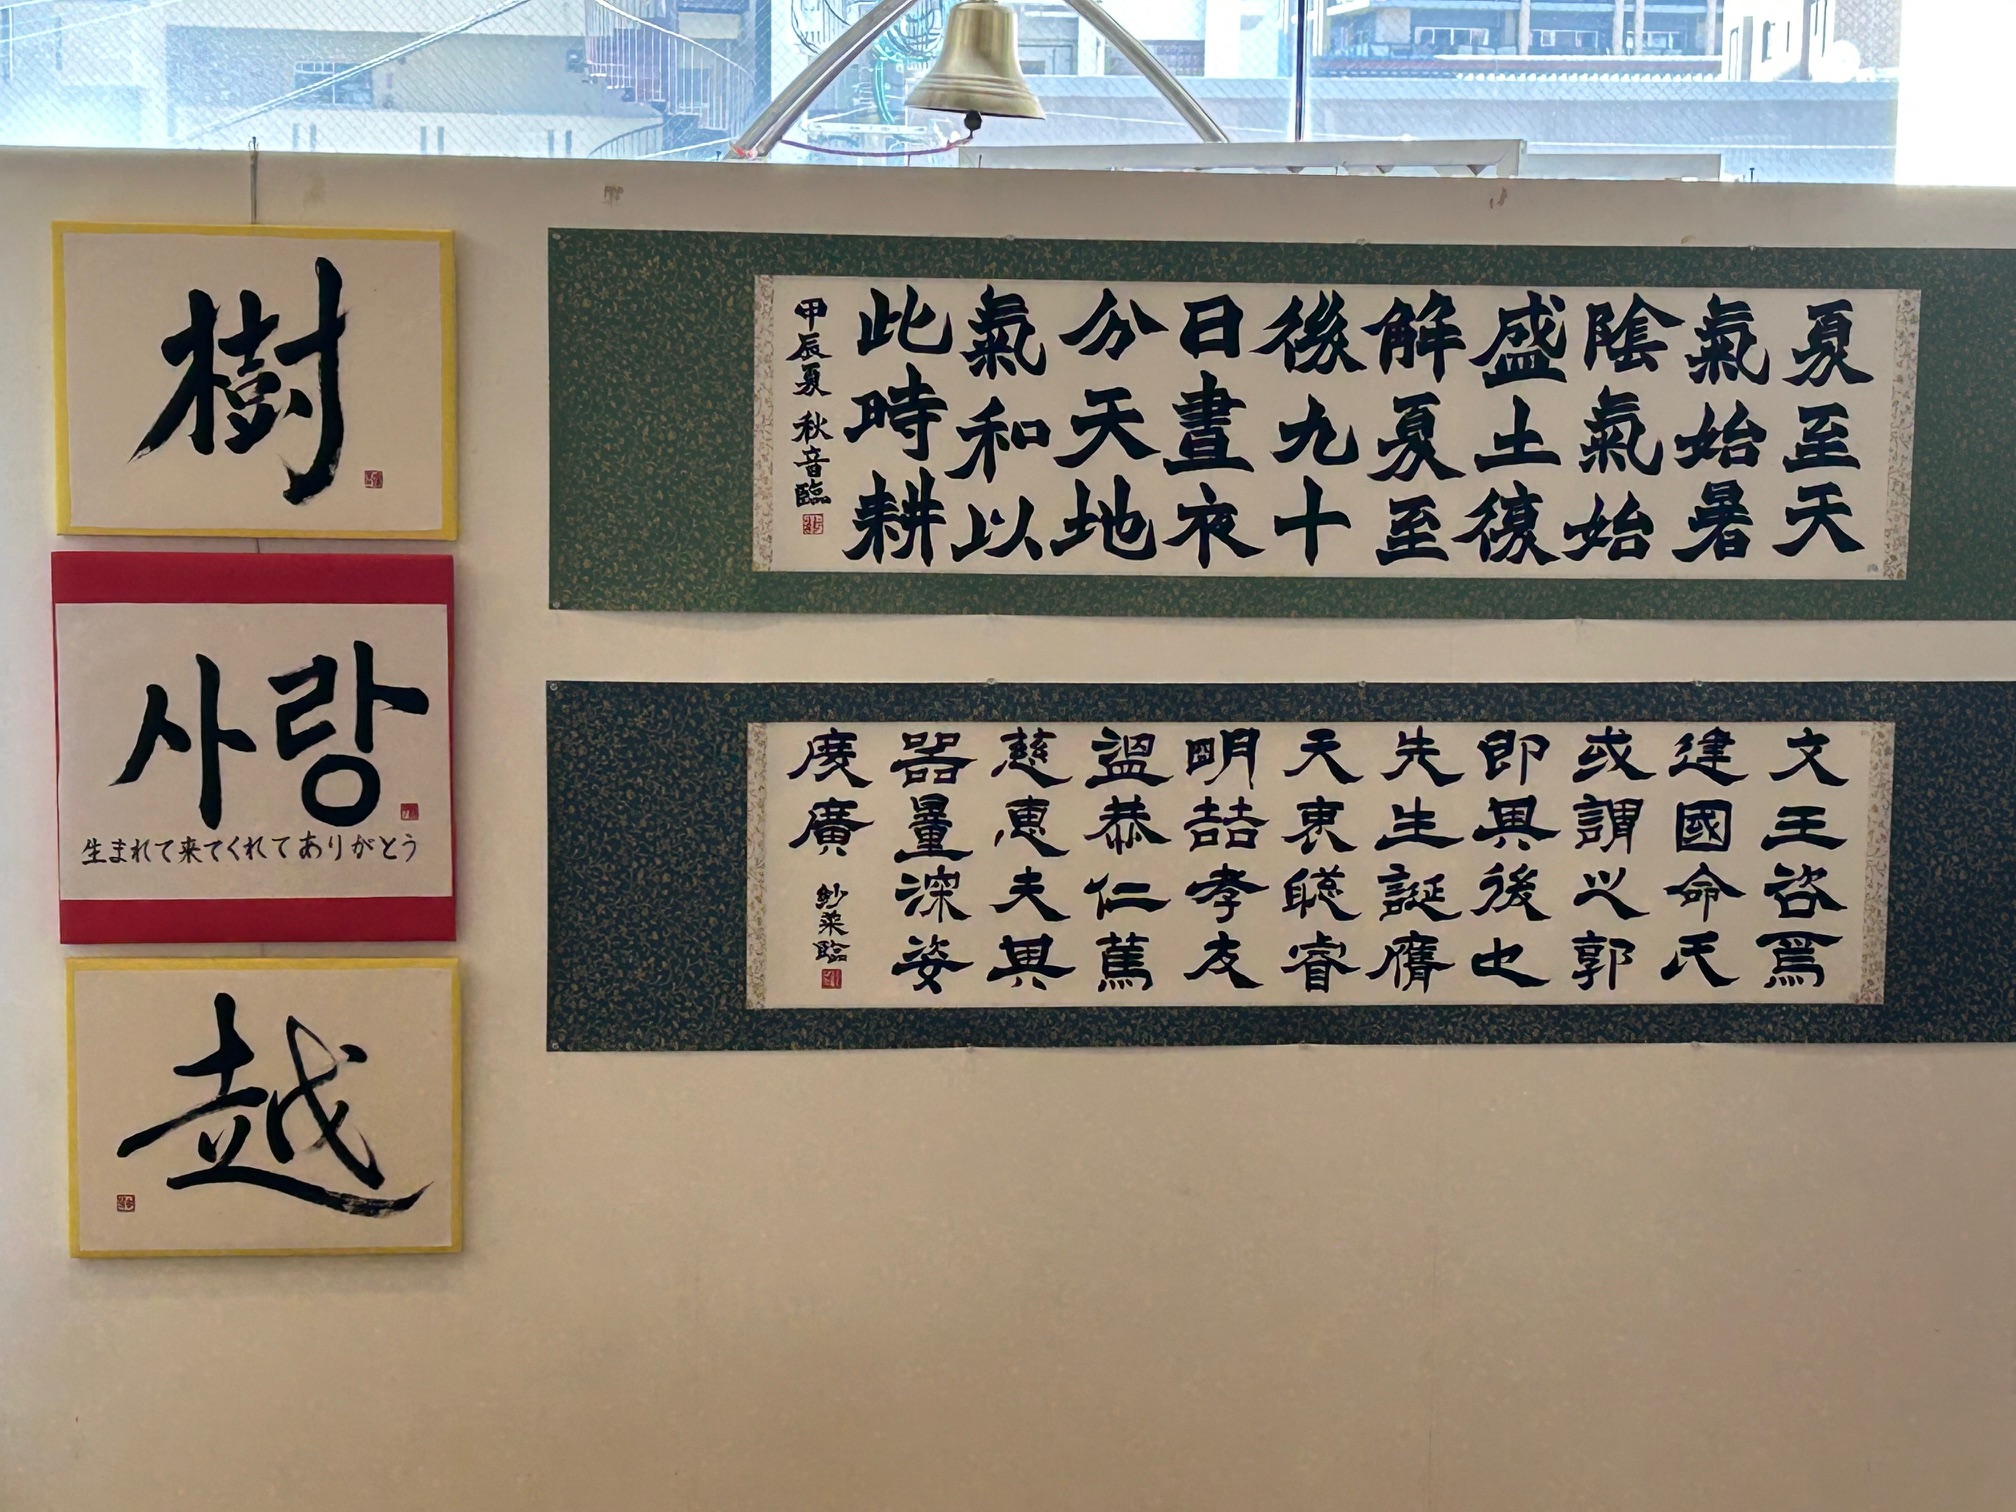 樹
사랑
生まれて来てくれてありがとう
越
夏至天
氣始暑
陰氣始
盛土復
解夏至
後九十
日晝夜
分天地
氣和以
此時耕
甲辰夏 秋音臨
文王咨焉
建國命氏
或謂之郭
即其後也
先生誕膺
天衷聡睿
明喆孝友
溫恭仁篤
慈恵夫其
器量深姿
度廣
臨